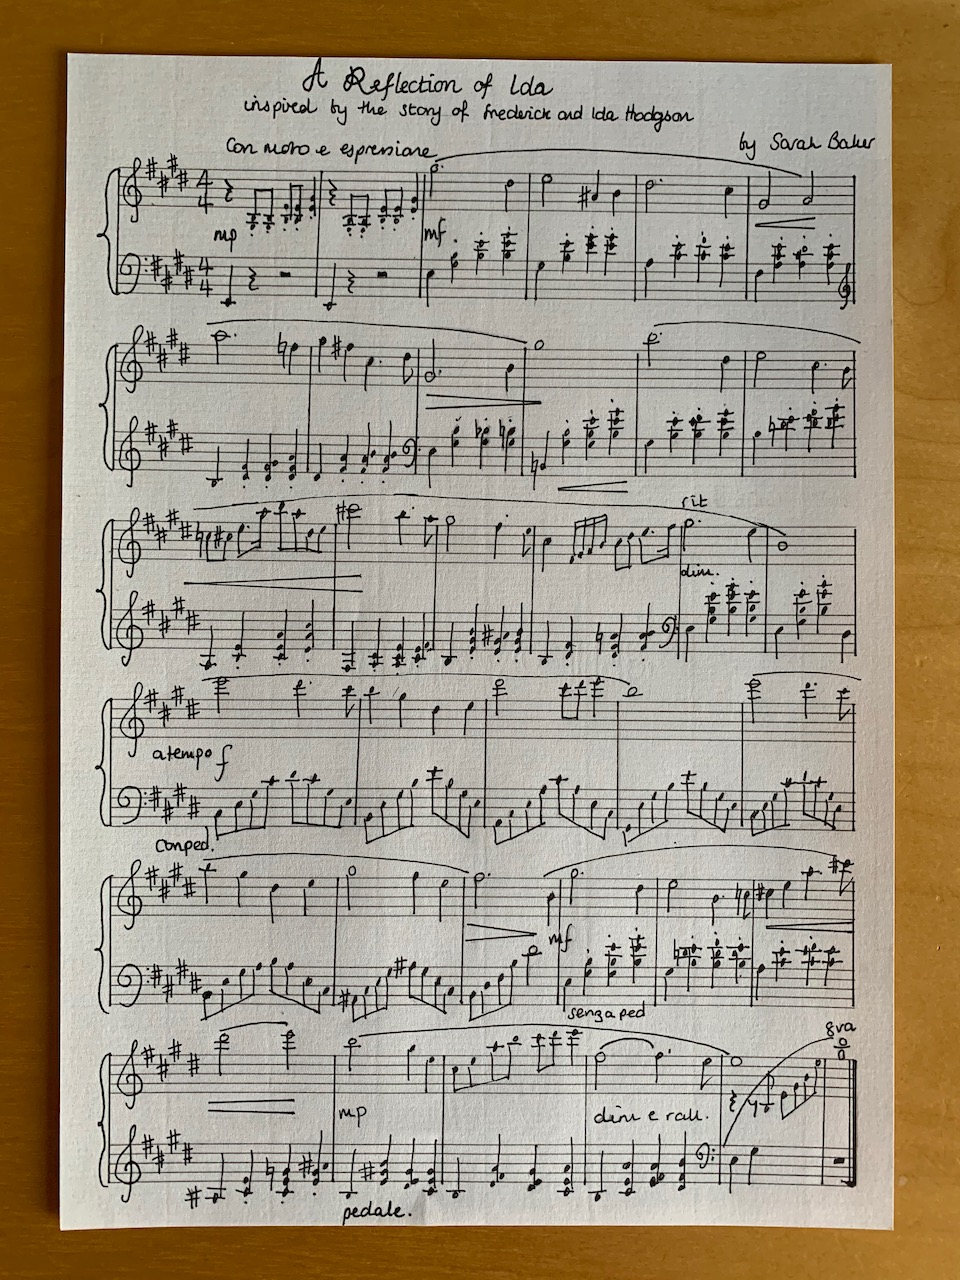 A Reflection of Ida
inspired by the story of Frederick and Ida Hodgson
by Sarah Baker
Con moto e espressione
4 4
mp
mf
4 4
rit
dim.
a tempo f
Con ped.
mf
senza ped
8va
mp
dim e rall.
pedale.